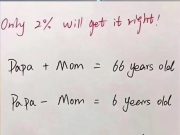 Only 2% will get it right!
Papa + Mom = 66 years old
Papa - Mom = 6 years old